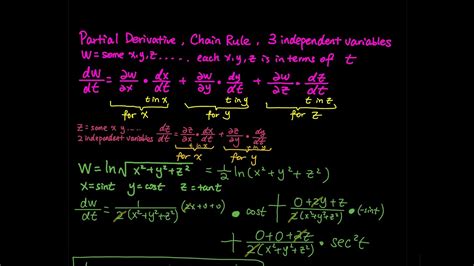 Partial Derivative, Chain Rule, 3 independent variables
W = some x, y, z ..... each x, y, z is in terms of t
dw/dt = ∂w/∂x · dx/dt + ∂w/∂y · dy/dt + ∂w/∂z · dz/dt
t in x t in y t in z
for x for y for z
z = some x y ....
2 independent variables dz/dt = ∂z/∂x · dx/dt + ∂z/∂y · dy/dt
t in x t in y
for x for y
W = ln √(x²+y²+z²) = 1/2 ln(x²+y²+z²)
x = sint y = cost z = tant
dw/dt = 1/(2(x²+y²+z²)) (2x+0+0) · cost + (0+2y+0)/(2(x²+y²+z²)) · (-sint)
+ (0+0+2z)/(2(x²+y²+z²)) · sec²t